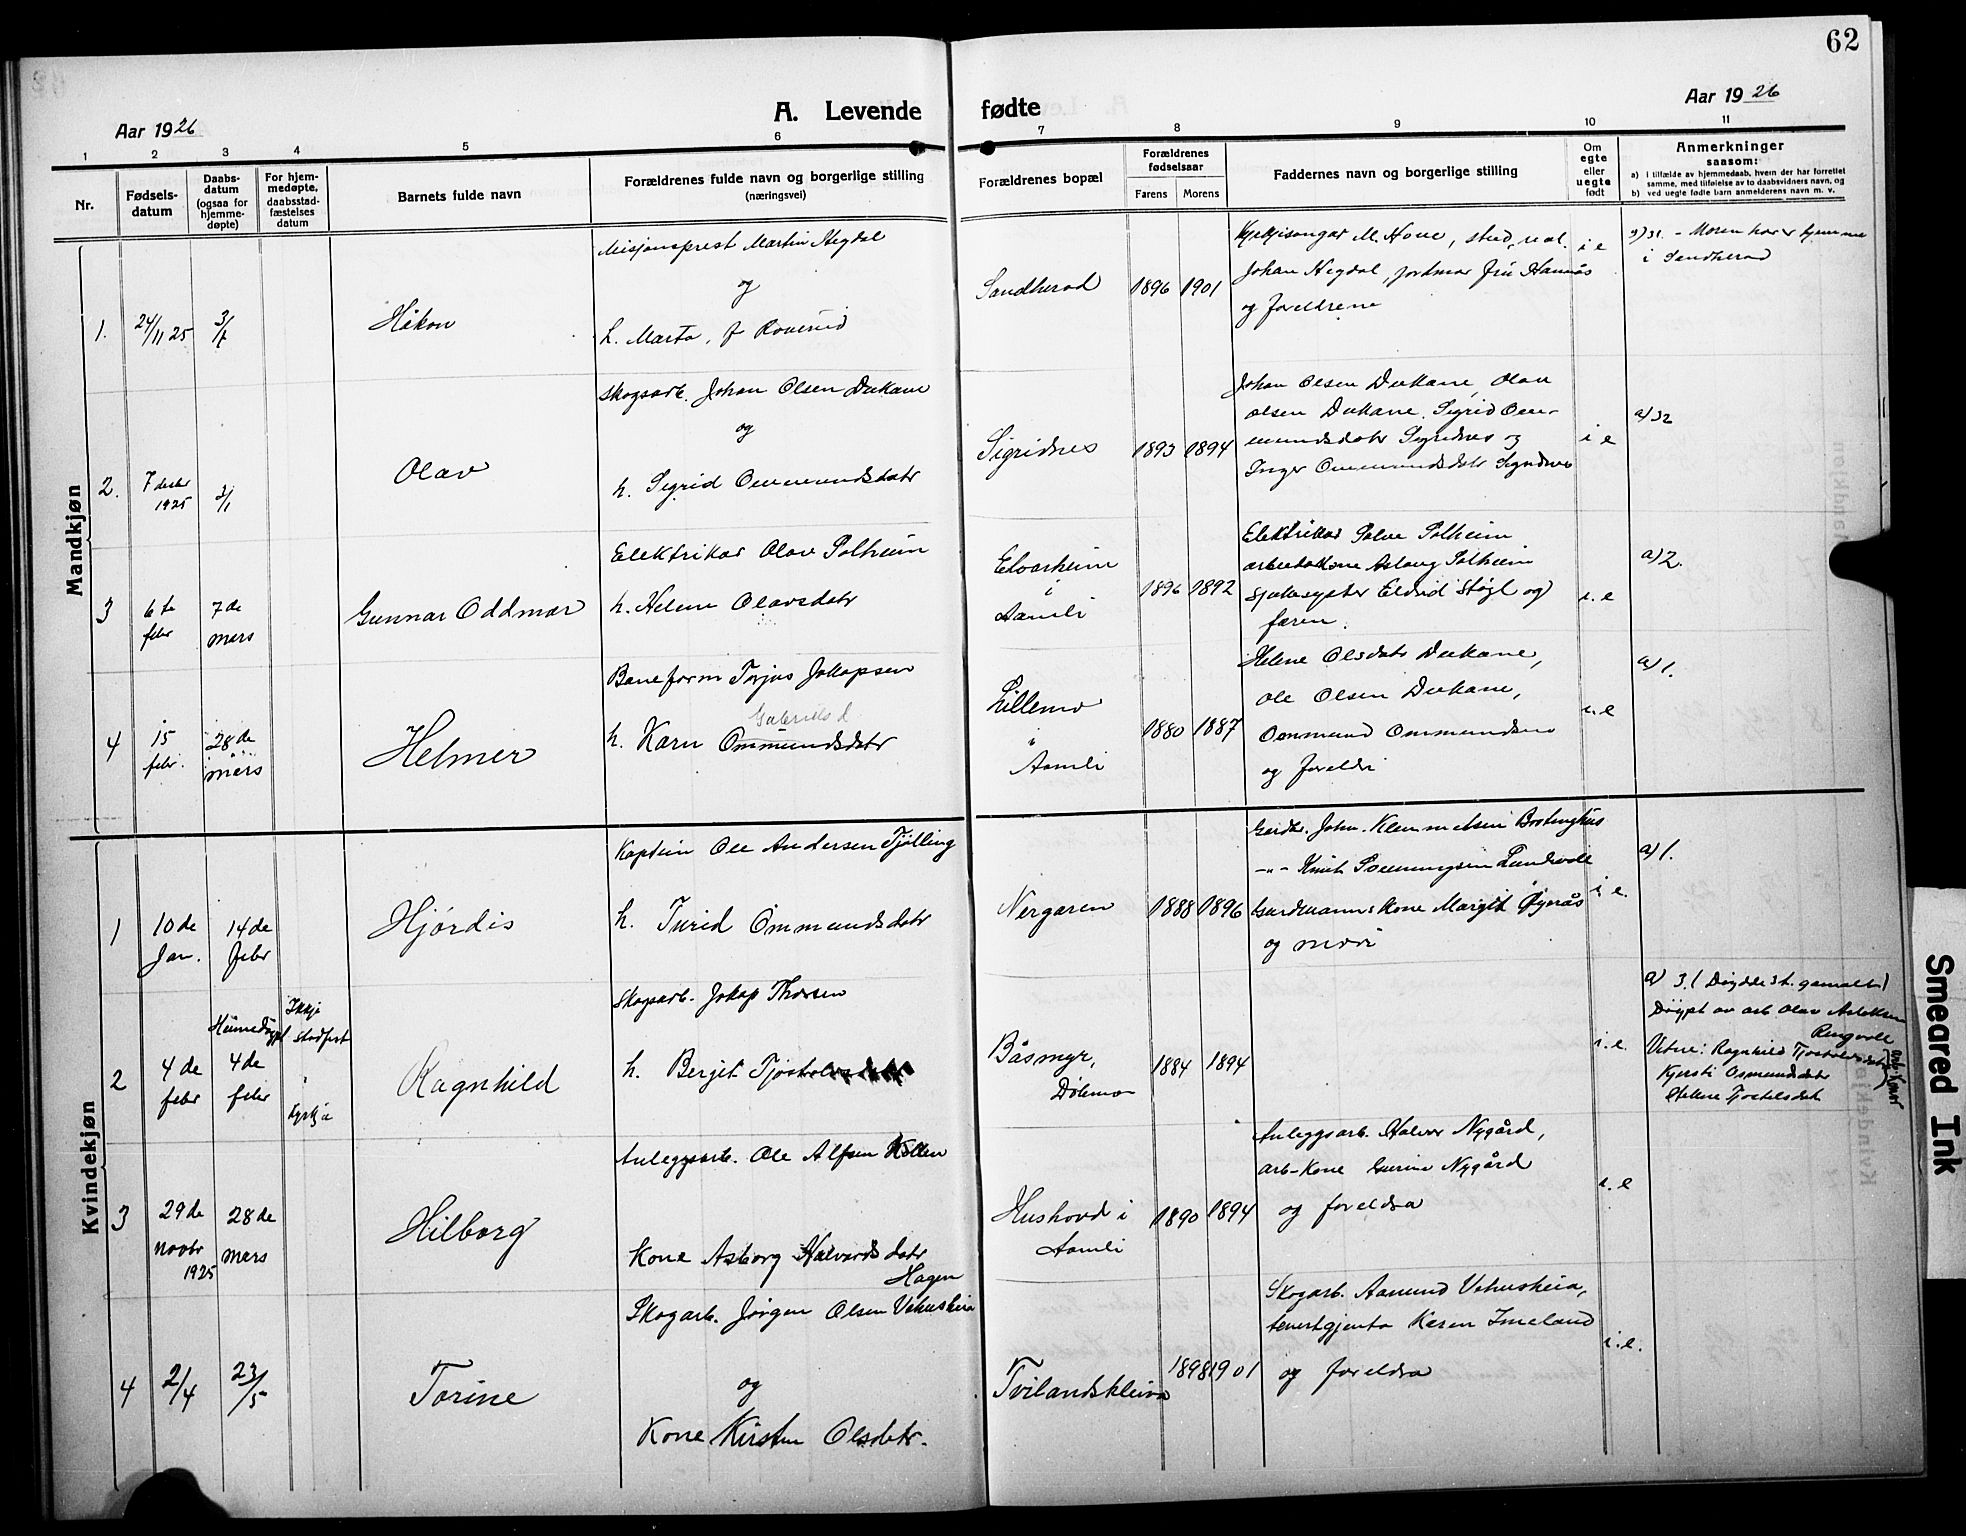 62
A. Levende fødte
Aar 1926
Aar 1926
1 2 3 4 5 6 7 8 9 10 11
Nr.
Fødsels-
datum
Daabs-
datum
(ogsaa for
hjemme-
døpte)
For hjem-
medøpte,
daabsstad-
fæstelses
datum
Barnets fulde navn
Forældrenes fulde navn og borgerlige stilling
(næringsvei)
Forældrenes bopæl
Forældrenes
fødselsaar
Farens Morens
Faddernes navn og borgerlige stilling
Om
egte
eller
uegte
født
Anmerkninger
saasom:
a) i tilfælde av hjemmedaab, hvem der har forrettet
samme, med tilføielse av to daabsvidners navn, og
b) ved uegte fødte barn anmelderens navn m. v.
Mandkjøn
1. 24/11 25
Håkon
Misjonsprest Martin Hegdal
og
h. Marta, f.
Sandherad
1896 1901
Johan Hegdal, jordmor fru
og foreldrene
i e
Moren har hjemme
i Sandherad
2. 7 desbr
1925
3/1
Olav
Skogsarb. Johan Olsen Dukane
og
h. Sigrid Ommundsdatr
Sigridnes
1893 1894
Johan Olsen Dukane, Olav
Olsen Dukane. Sigrid Om-
mundsdatr Sigridnes og
Inger Ommundsdatr Sigridnes
i e
a) 32
3 6te
febr
7de
mars
Gunnar Oddmar
Elektrikar Olav Solheim
h. Helene Olavsdatr
Elvarheim
i
Aamli
1896 1892
Elektrikar Salve Solheim
arbeidarkone Aslaug Solheim
sjukesyster Eldrid og
faren.
u. e
a) 2.
4 15
febr.
28de
mars
Helmer
Baneform Torjus Jakopsen
Gabrielsd
h. Karn Ommundsdatr
Lillemo
i
Aamli
1880 1887
Helene Olsdatr Dukane,
Ole Olsen Dukane,
Ommund Ommundsen
og foreldri
u. e
a) 1.
Kvindekjøn
1 10de
Jan.
14de
febr
Hjördis
Kaptein Ole Andersen Tjölling
h. Turid Ommundsdatr
Nergaren
1888 1896
Gardbr. John Klemmetsen
-"- Knut
Gardmannskone Margit Øynås
og mori
i. e.
a) 1.
2 4de
febr
Heimedöypt
4de
febr
Ikkje
stadfest
i
kyrkja
Ragnhild
Skogsarb. Jakop Thorsen
h. Bergit
Båsmyr,
Dölemo
1884 1894
i. e.
a) 3. (Döydde 3 t. gamalt)
Döypt av arb. Olav Asleksen
Vitne: Ragnhild
Kjersti Osmundsdatr
Helene
3 29de
novbr
1925
28de
mars
Hilborg
Anleggsarb. Ole Alfsen
Kone Asborg Halvards datr
Hagen
Hushovd i
Aamli
1890 1894
Anleggsarb. Halvor Nygård,
arb-kone Gurine Nygård
og foreldra
i. e
4 2/4
23/5
Torine
Skogarb. Jørgen Olsen Vehusheia
og
Kone Kirsten Olsdatr.
Tvilandskleiva
1898 1901
Skogarb. Aamund Vehusheia,
tenestgjenta Karen Imeland
og foreldra
i. e.
Smeared Ink